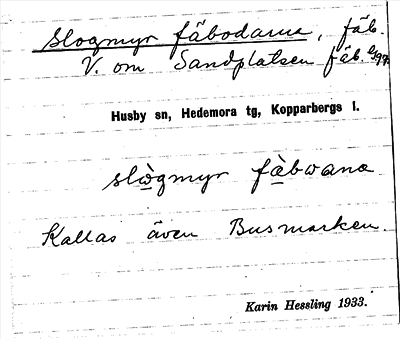 Slogmyr fäbodarna, fäb.
V. om Sandplatsen fäb.
Husby sn, Hedemora tg, Kopparbergs l.
slògmyr fàbωana
Kallas även Busmarken.
Karin Hessling 1933.